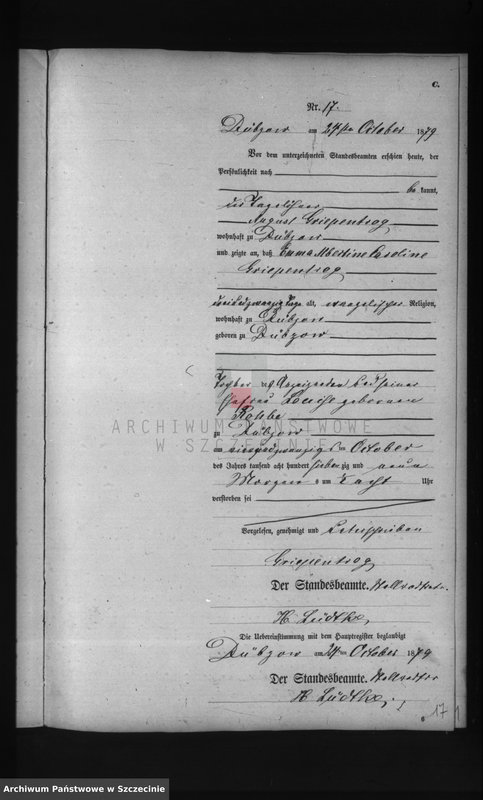 C.
Nr. 17.
Dübzow am 24ten October 1879
Vor dem unterzeichneten Standesbeamten erschien heute, der
Persönlichkeit nach
be kannt,
der Tagelöhner
August Griepentrog
wohnhaft zu Dübzow
und zeigte an, daß Emma Albertine Caroline
Griepentrog
alt, evangelischer Religion,
wohnhaft zu Dübzow
geboren zu Dübzow
Tochter des Anzeigenden und seiner
Ehefrau Louise geborenen
ARCHIWUM PAŃSTWOWE
W SZCZECINIE
zu Dübzow
am vierundzwanzigsten October
des Jahres tausend acht hundert siebenzig und neun
Morgens um acht Uhr
verstorben sei
Vorgelesen, genehmigt und unterschrieben
Griepentrog
Der Standesbeamte.
H Lüdtke
Die Uebereinstimmung mit dem Hauptregister beglaubigt
Dübzow am 24ten October 1879
Der Standesbeamte.
H Lüdtke
17
Archiwum Państwowe w Szczecinie